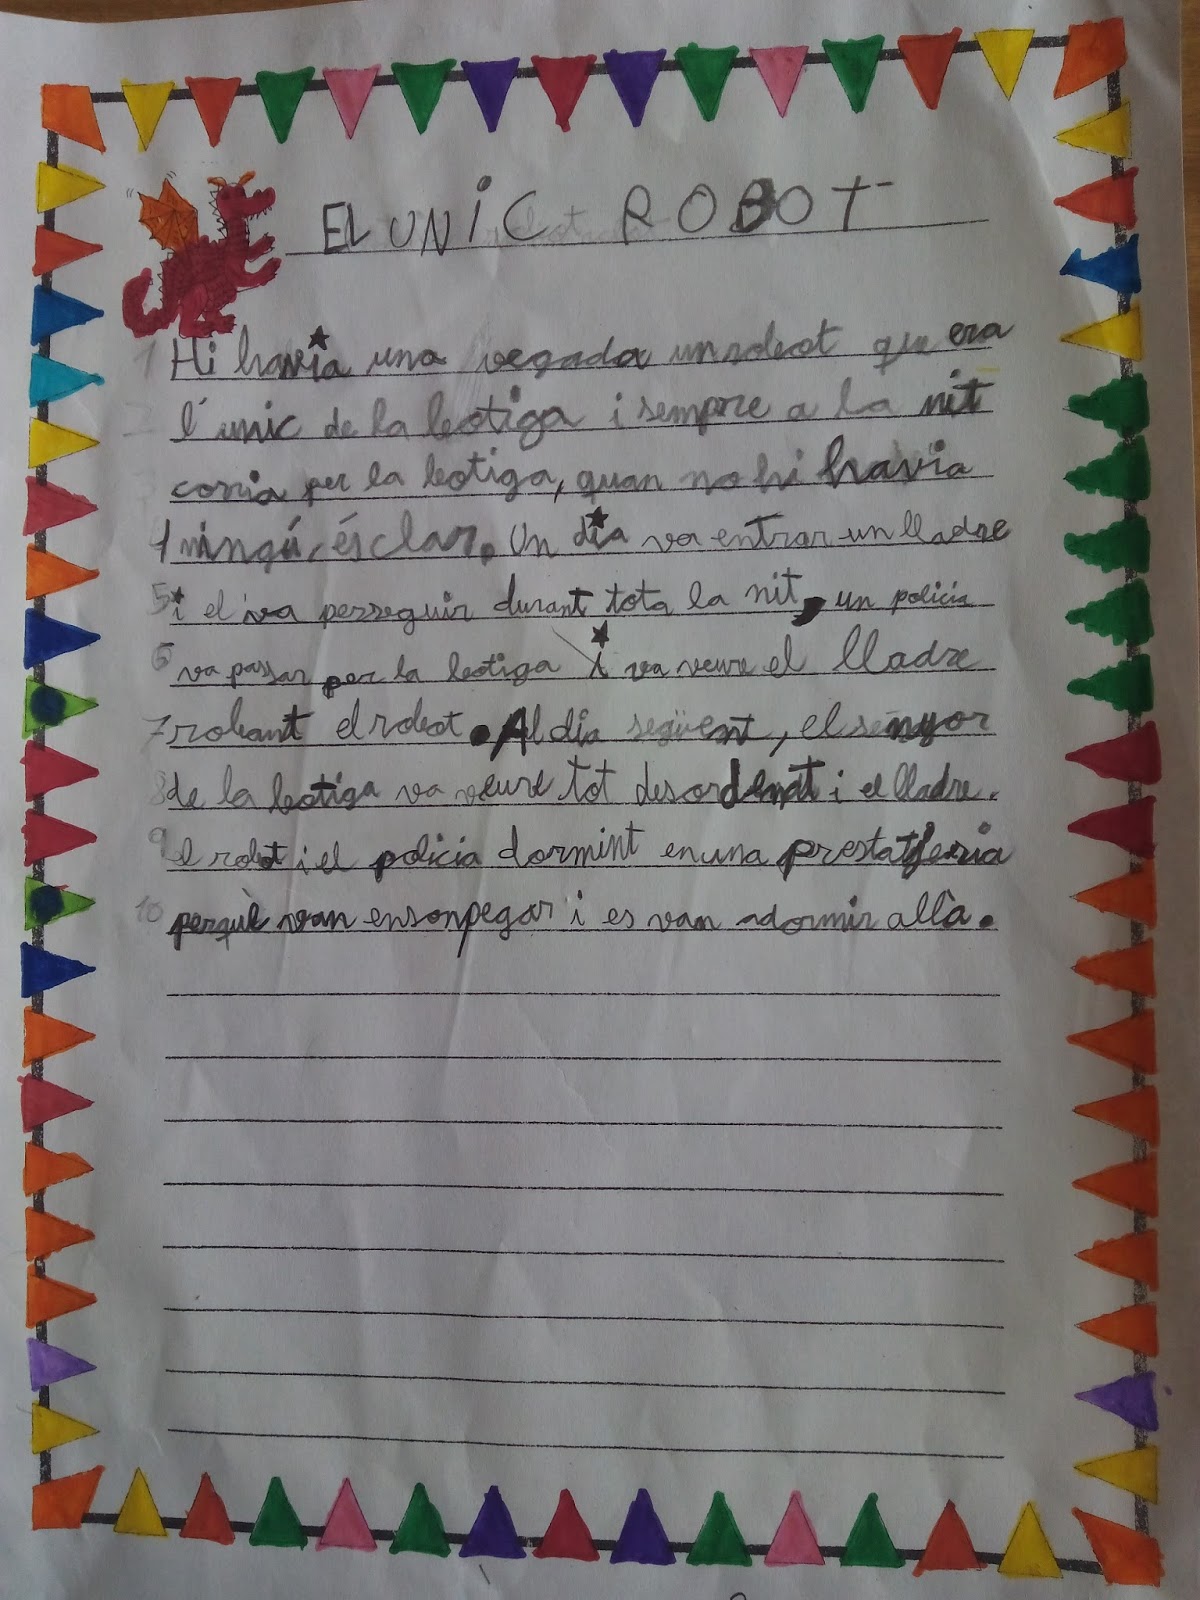 EL UNIC ROBOT
1 Hi havia una vegada un robot que era
2 l'unic de la botiga i sempre a la nit
3 corria per la botiga, quan no hi havia
4 ningú, és clar. Un dia va entrar un lladre
5 i el va perseguir durant tota la nit, un policia
6 va passar per la botiga i va veure el lladre
7 robant el robot. Al dia següent, el senyor
8 de la botiga va veure tot desordenat i el lladre.
9 el robot i el policia dormint en una prestatgeria
10 perquè van ensonpegar i es van adormir allà.